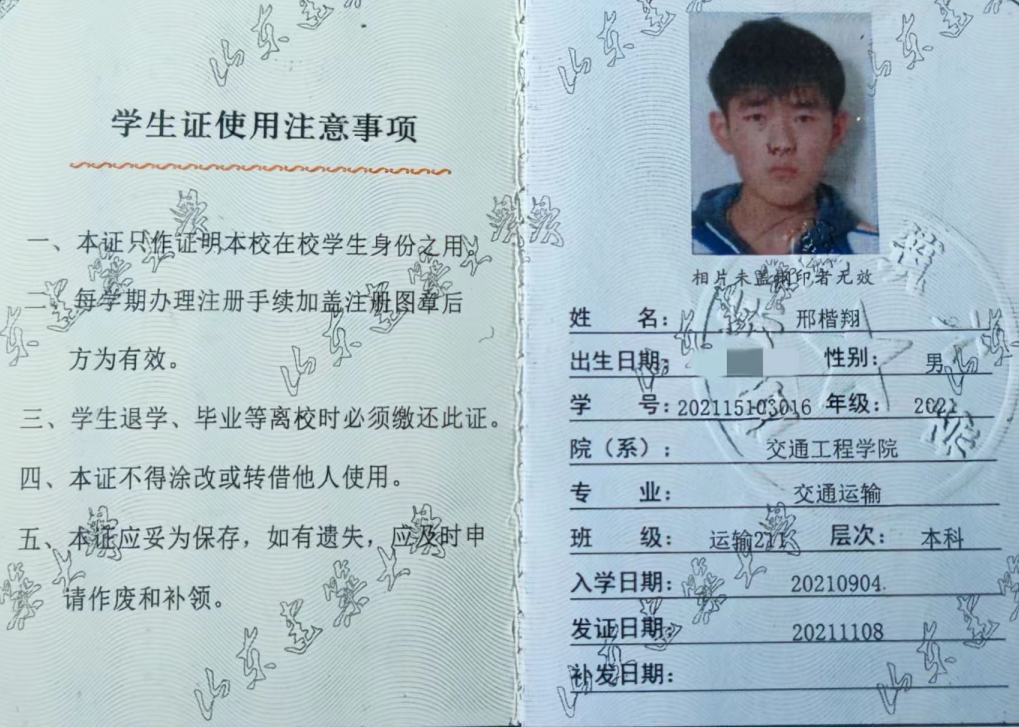 学生证使用注意事项
一、本证只作证明本校在校学生身份之用。
二、每学期办理注册手续加盖注册图章后
方为有效。
三、学生退学、毕业等离校时必须缴还此证。
四、本证不得涂改或转借他人使用。
五、本证应妥为保存，如有遗失，应及时申
请作废和补领。
相片未盖钢印者无效
姓 名： 邢楷翔
出生日期： 性别： 男
学 号：202115103016 年级： 2021
院（系）： 交通工程学院
专 业： 交通运输
班 级： 运输211 层次： 本科
入学日期： 20210904
发证日期： 20211108
补发日期：